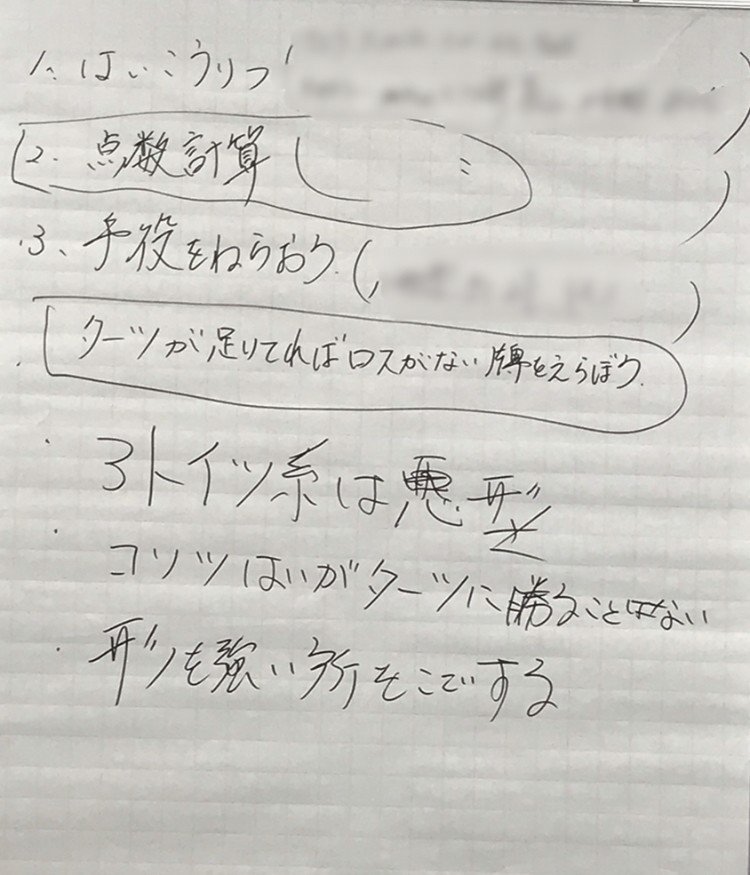 1、はいこうりつ
2. 点数計算 ( :
3、手役をねらおう. (
ターツが足りてればロスがない牌をえらぼう.
・3トイツ系は悪形
・コツツはいがターツに勝ることはない
・形を強い所をこでする